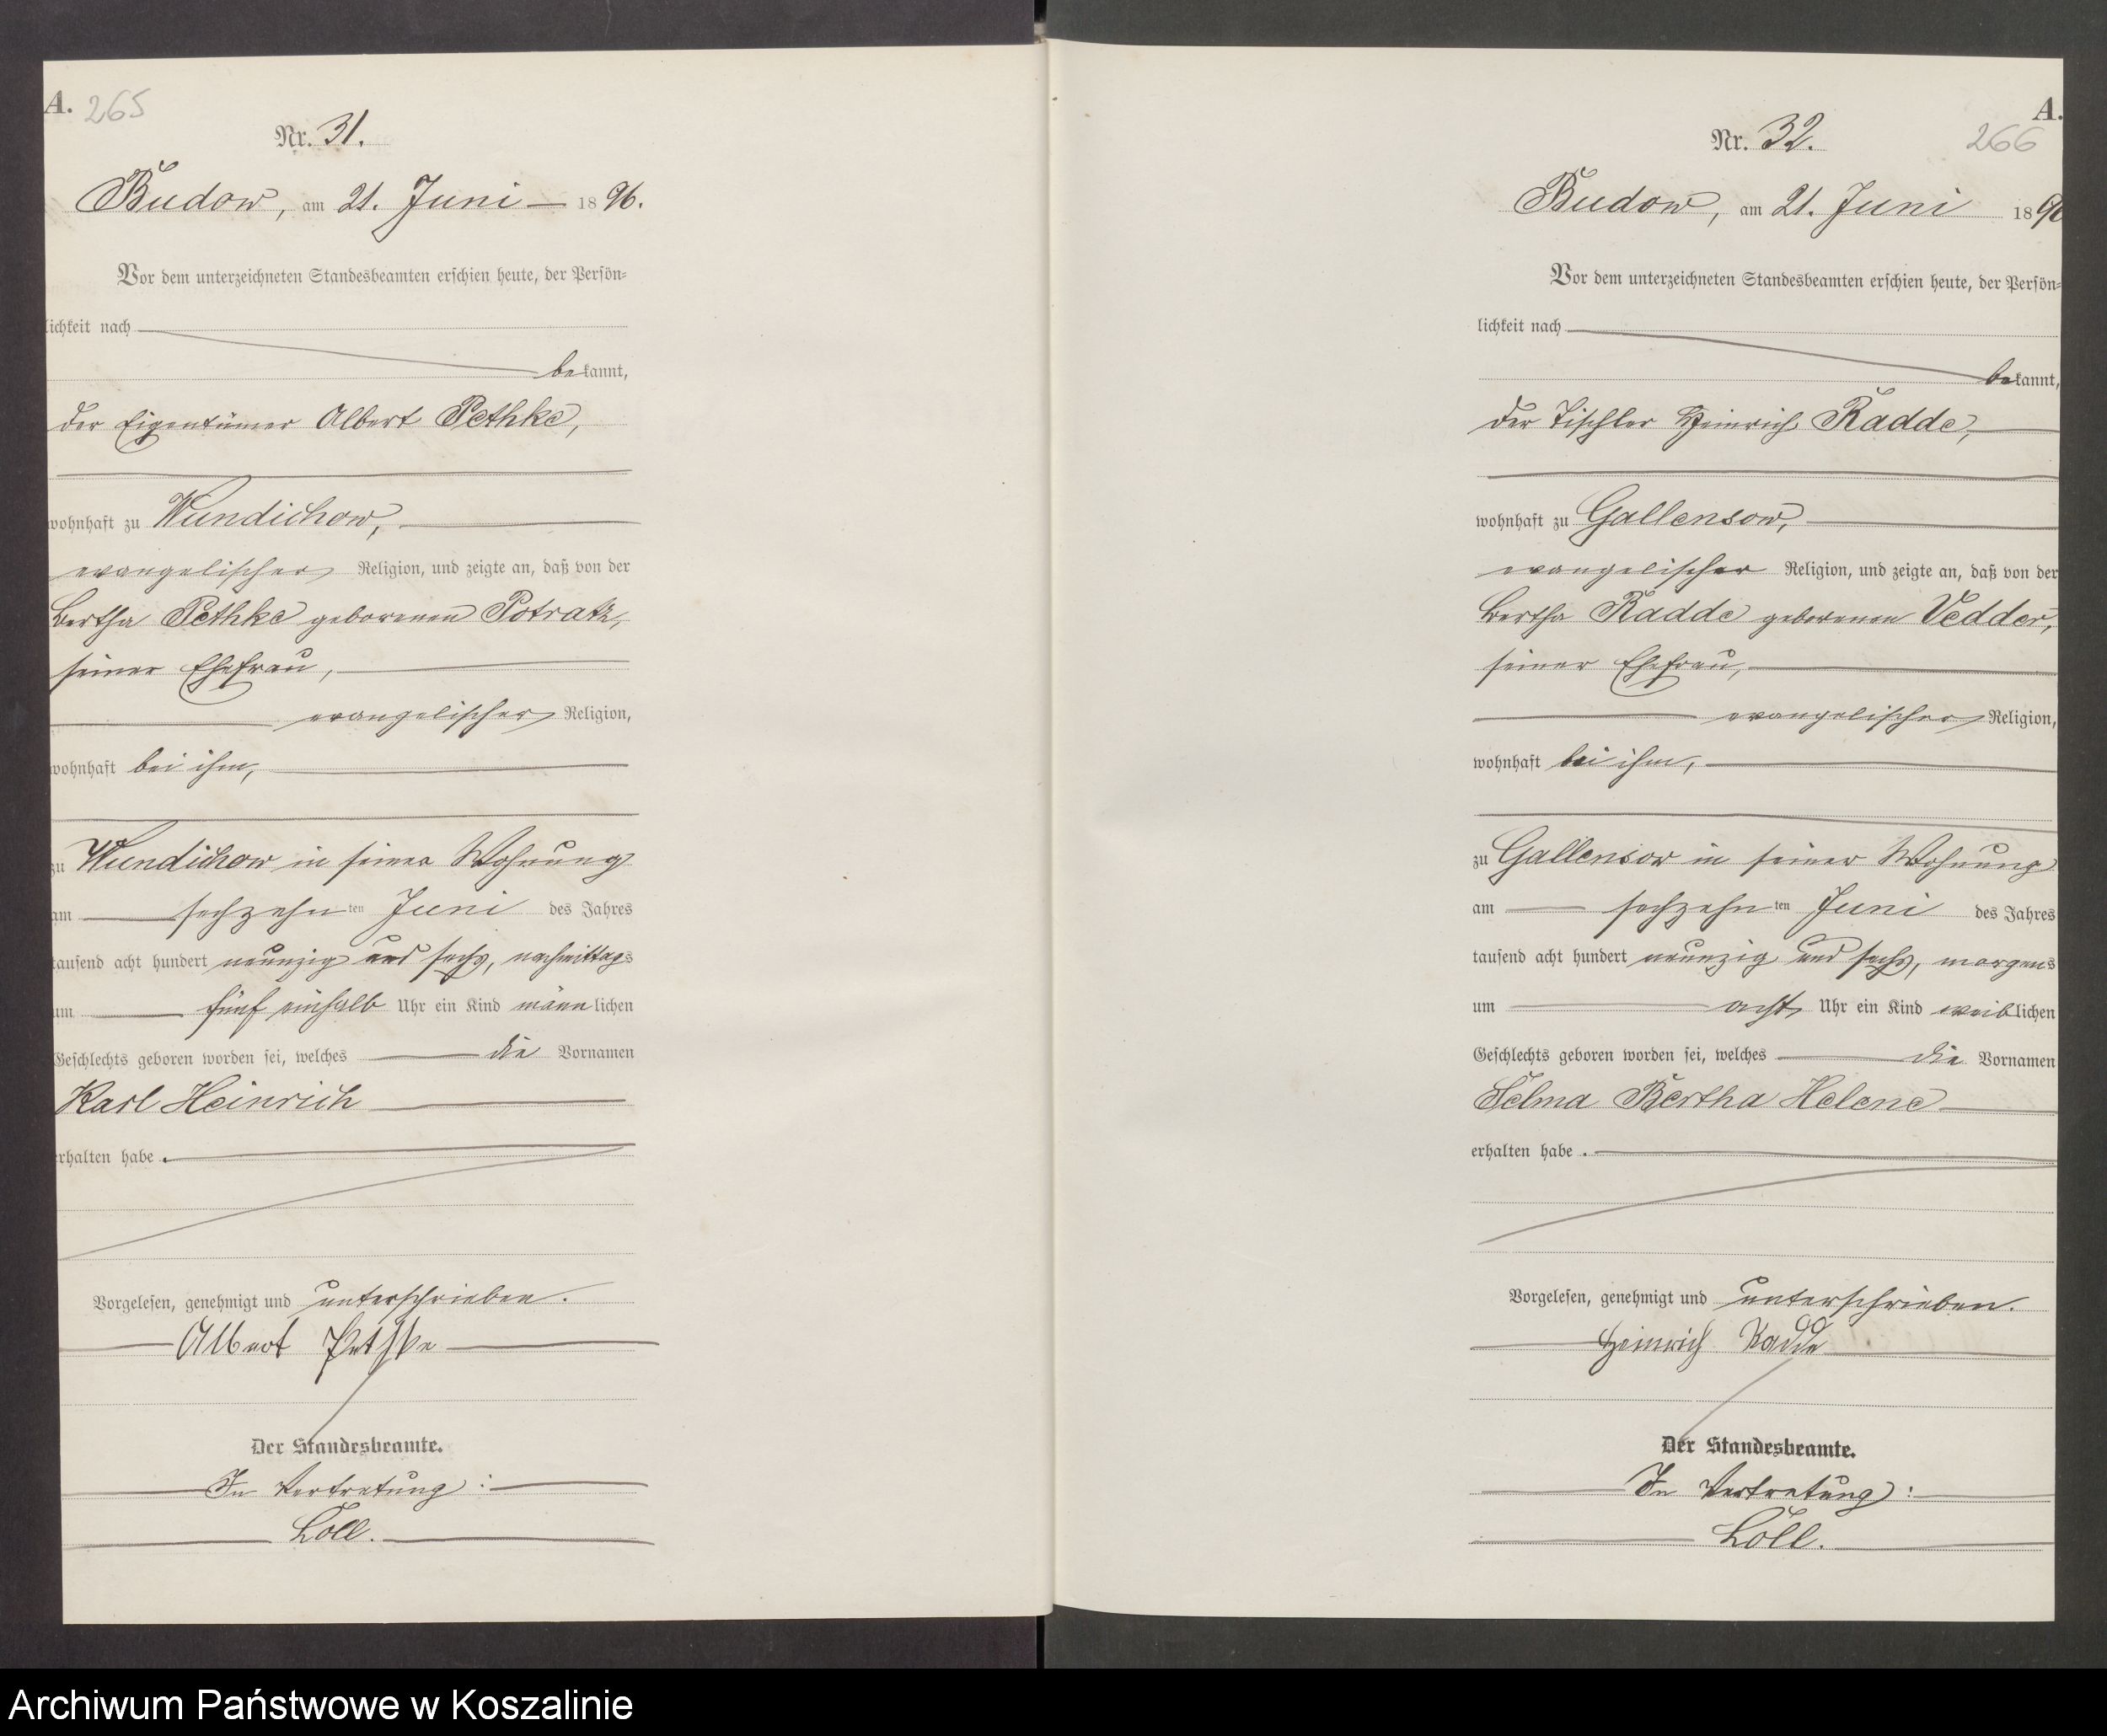 A. 265
Nr. 31.
Budow, am 21. Juni 1896.
Vor dem unterzeichneten Standesbeamten erschien heute, der Persön-
lichkeit nach
bekannt,
der Eigentümer Albert Pethke,
wohnhaft zu Wundichow,
evangelischer Religion, und zeigte an, daß von der
Bertha Pethke geborenen Potratz,
seiner Ehefrau,
evangelischer Religion,
wohnhaft bei ihm,
zu Wundichow in seiner Wohnung
am sechzehnten Juni des Jahres
tausend acht hundert neunzig und sechs, nachmittags
um fünf einhalb Uhr ein Kind männlichen
Geschlechts geboren worden sei, welches die Vornamen
Karl Heinrich
erhalten habe.
Vorgelesen, genehmigt und unterschrieben.
Albert Pethke
Der Standesbeamte.
In Vertretung:
Löll.
A.
Nr. 32. 266
Budow, am 21. Juni 1896
Vor dem unterzeichneten Standesbeamten erschien heute, der Persön-
lichkeit nach
bekannt,
der Tischler Heinrich Radde,
wohnhaft zu Gallensow,
evangelischer Religion, und zeigte an, daß von der
Bertha Radde geborenen Vedder,
seiner Ehefrau,
evangelischer Religion,
wohnhaft bei ihm,
zu Gallensow in seiner Wohnung
am sechzehnten Juni des Jahres
tausend acht hundert neunzig und sechs, morgens
um acht Uhr ein Kind weiblichen
Geschlechts geboren worden sei, welches die Vornamen
Selma Bertha Helene
erhalten habe.
Vorgelesen, genehmigt und unterschrieben.
Heinrich Radde
Der Standesbeamte.
In Vertretung:
Löll.
Archiwum Państwowe w Koszalinie